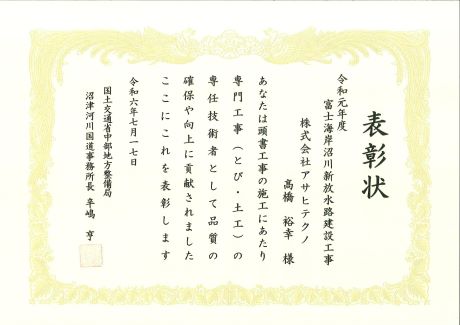 表彰状
令和元年度
富士海岸沼川新放水路建設工事
株式会社アサヒテクノ
高橋 裕幸 様
あなたは頭書工事の施工にあたり
専門工事（とび・土工）の
専任技術者として品質の
確保や向上に貢献されました
ここにこれを表彰します
令和六年七月一七日
国土交通省中部地方整備局
沼津河川国道事務所長 辛嶋 亨